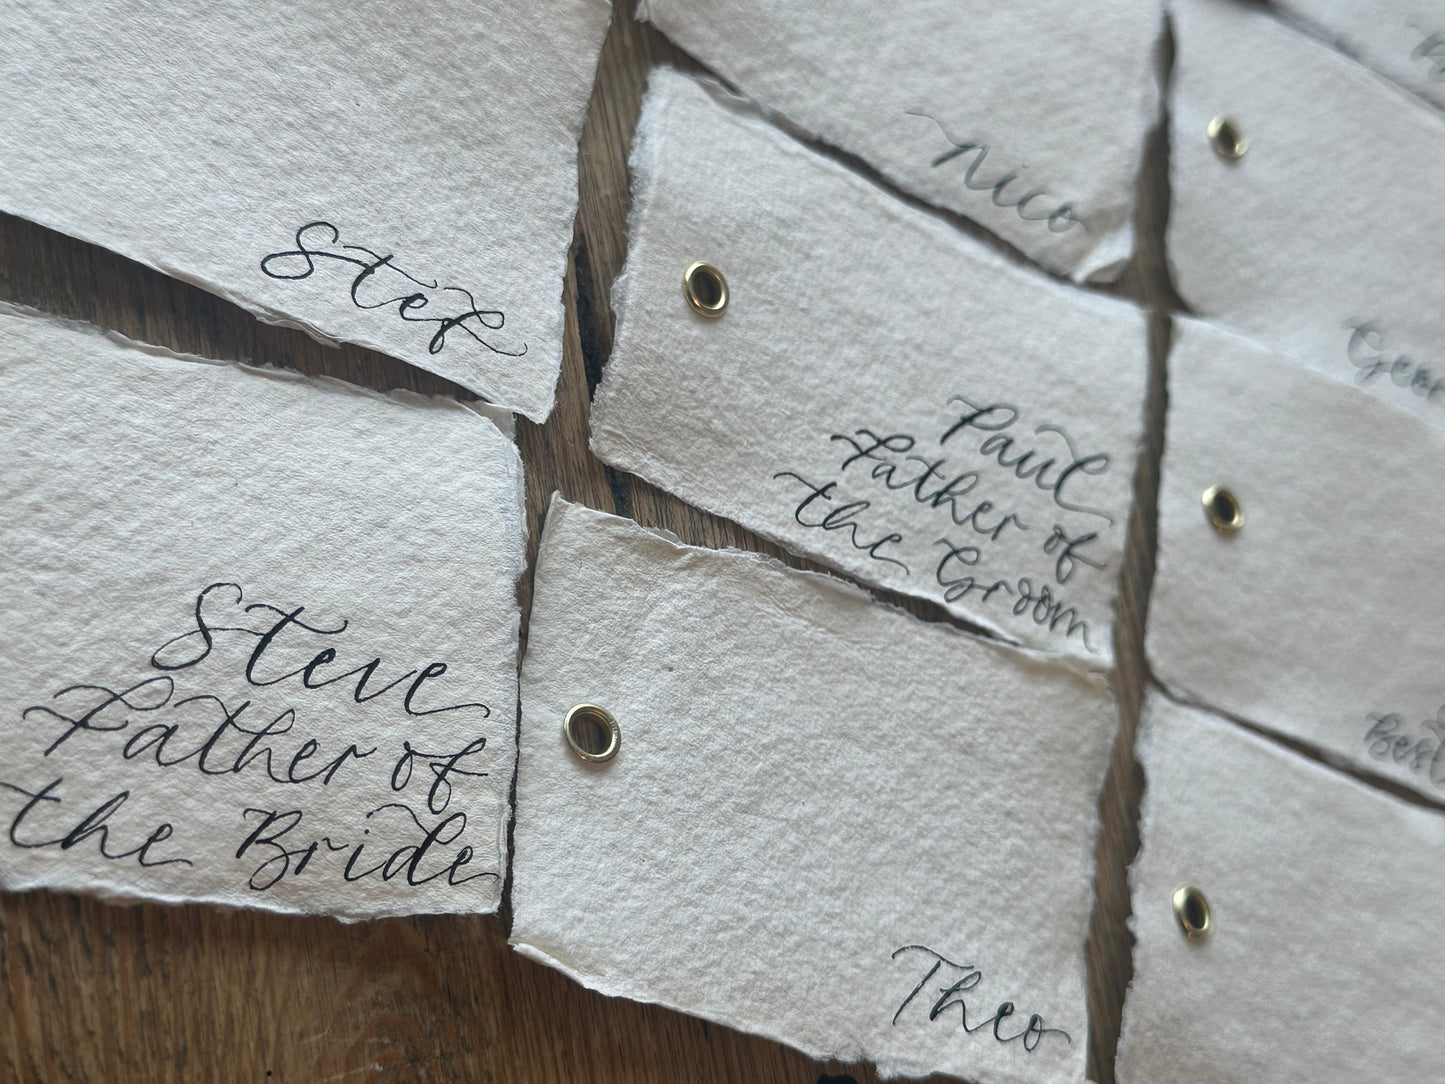 Stef
Nico
Paul
Father of
the Groom
Steve
Father of
the Bride
Theo
Best